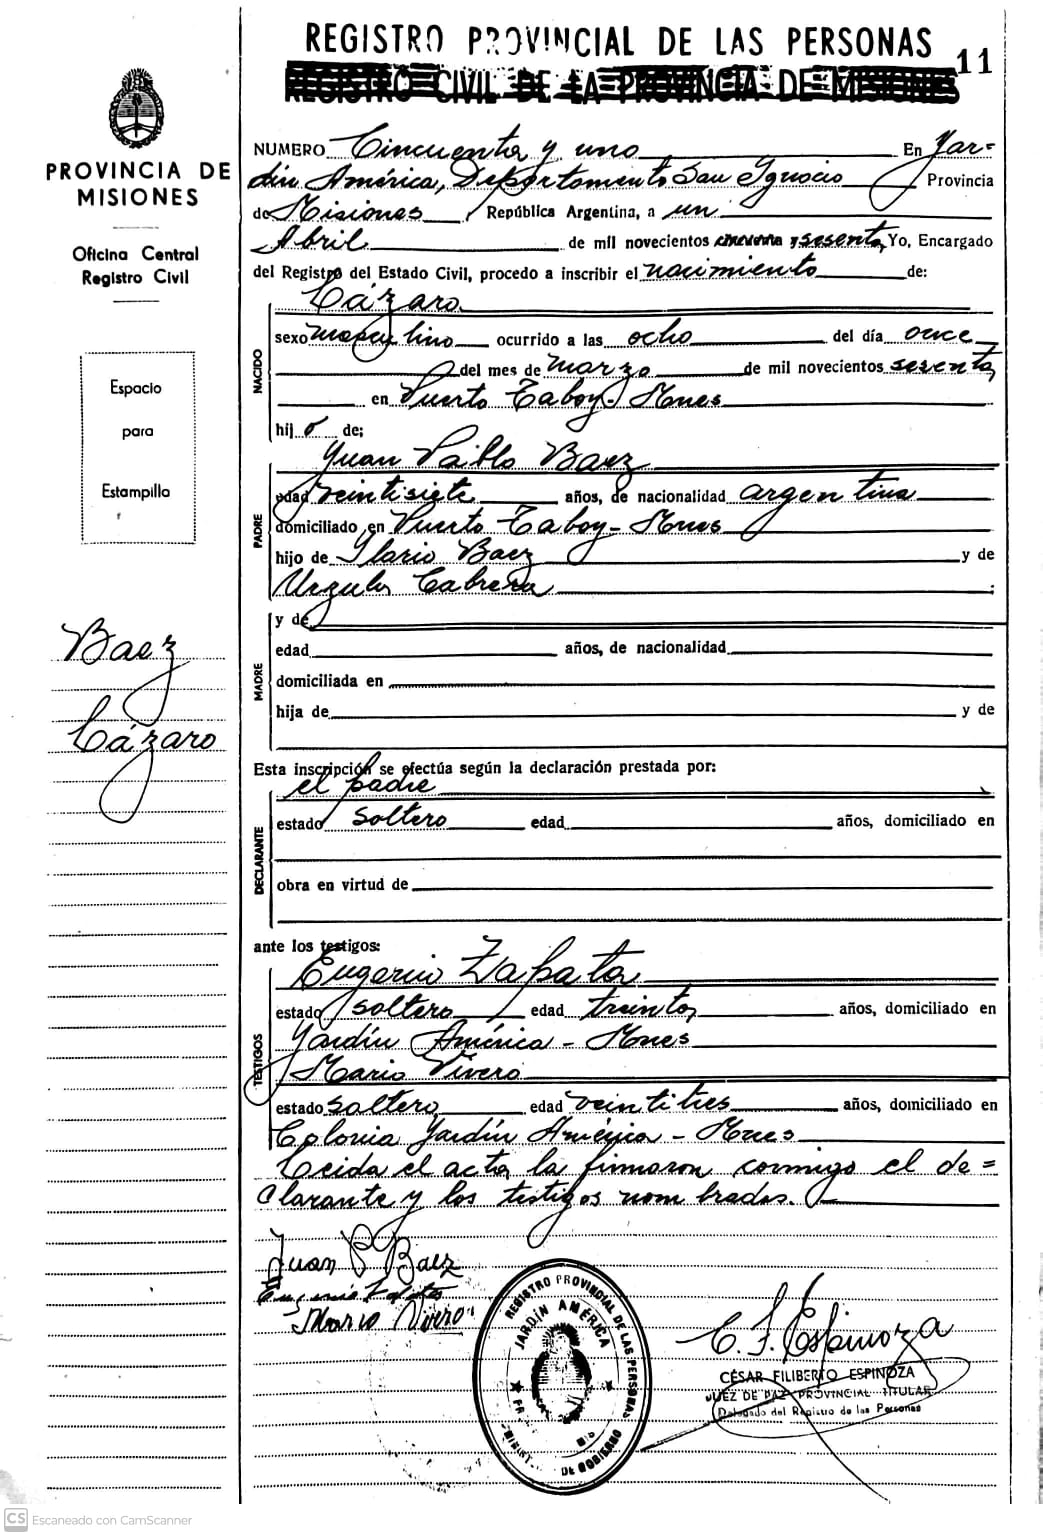 REGISTRO PROVINCIAL DE LAS PERSONAS
11
REGISTRO CIVIL DE LA PROVINCIA DE MISIONES
PROVINCIA DE
MISIONES
Oficina Central
Registro Civil
Espacio
para
Estampilla
Baez
Lázaro
NUMERO Cincuenta y uno En Jar=
dín América, Departamento San Ignacio Provincia
de Misiones, República Argentina, a un
Abril de mil novecientos cincuenta y sesenta, Yo, Encargado
del Registro del Estado Civil, procedo a inscribir el nacimiento de:
NACIDO
Lázaro
sexo masculino ocurrido a las ocho del día once
del mes de marzo de mil novecientos sesenta
en Puerto Taboy-Mnes
hijo de;
PADRE
Juan Pablo Baez
edad veintisiete años, de nacionalidad argentina
domiciliado en Puerto Taboy-Mnes
hijo de Ilario Baez y de
Urzula Cabrera ;
MADRE
y de
edad años, de nacionalidad
domiciliada en
hija de y de
Esta inscripción se efectúa según la declaración prestada por:
DECLARANTE
el padre
estado soltero edad años, domiciliado en
obra en virtud de
ante los testigos:
TESTIGOS
Eugenio Zapata
estado soltero edad treinta años, domiciliado en
Jardín América - Mnes
Mario Vivero
estado soltero edad veintitres años, domiciliado en
Colonia Jardín América - Mnes
Leida el acta la firmaron conmigo el de=
clarante y los testigos nombrados.
Juan P Baez
Eugenio Zapata
Mario Vivero
REGISTRO PROVINCIAL DE LAS PERSONAS
JARDÍN AMÉRICA
DE GOBIERNO
C. F. Espinoza
CÉSAR FILIBERTO ESPINOZA
JUEZ DE PAZ PROVINCIAL TITULAR
Delegado del Registro de las Personas
CS Escaneado con CamScanner